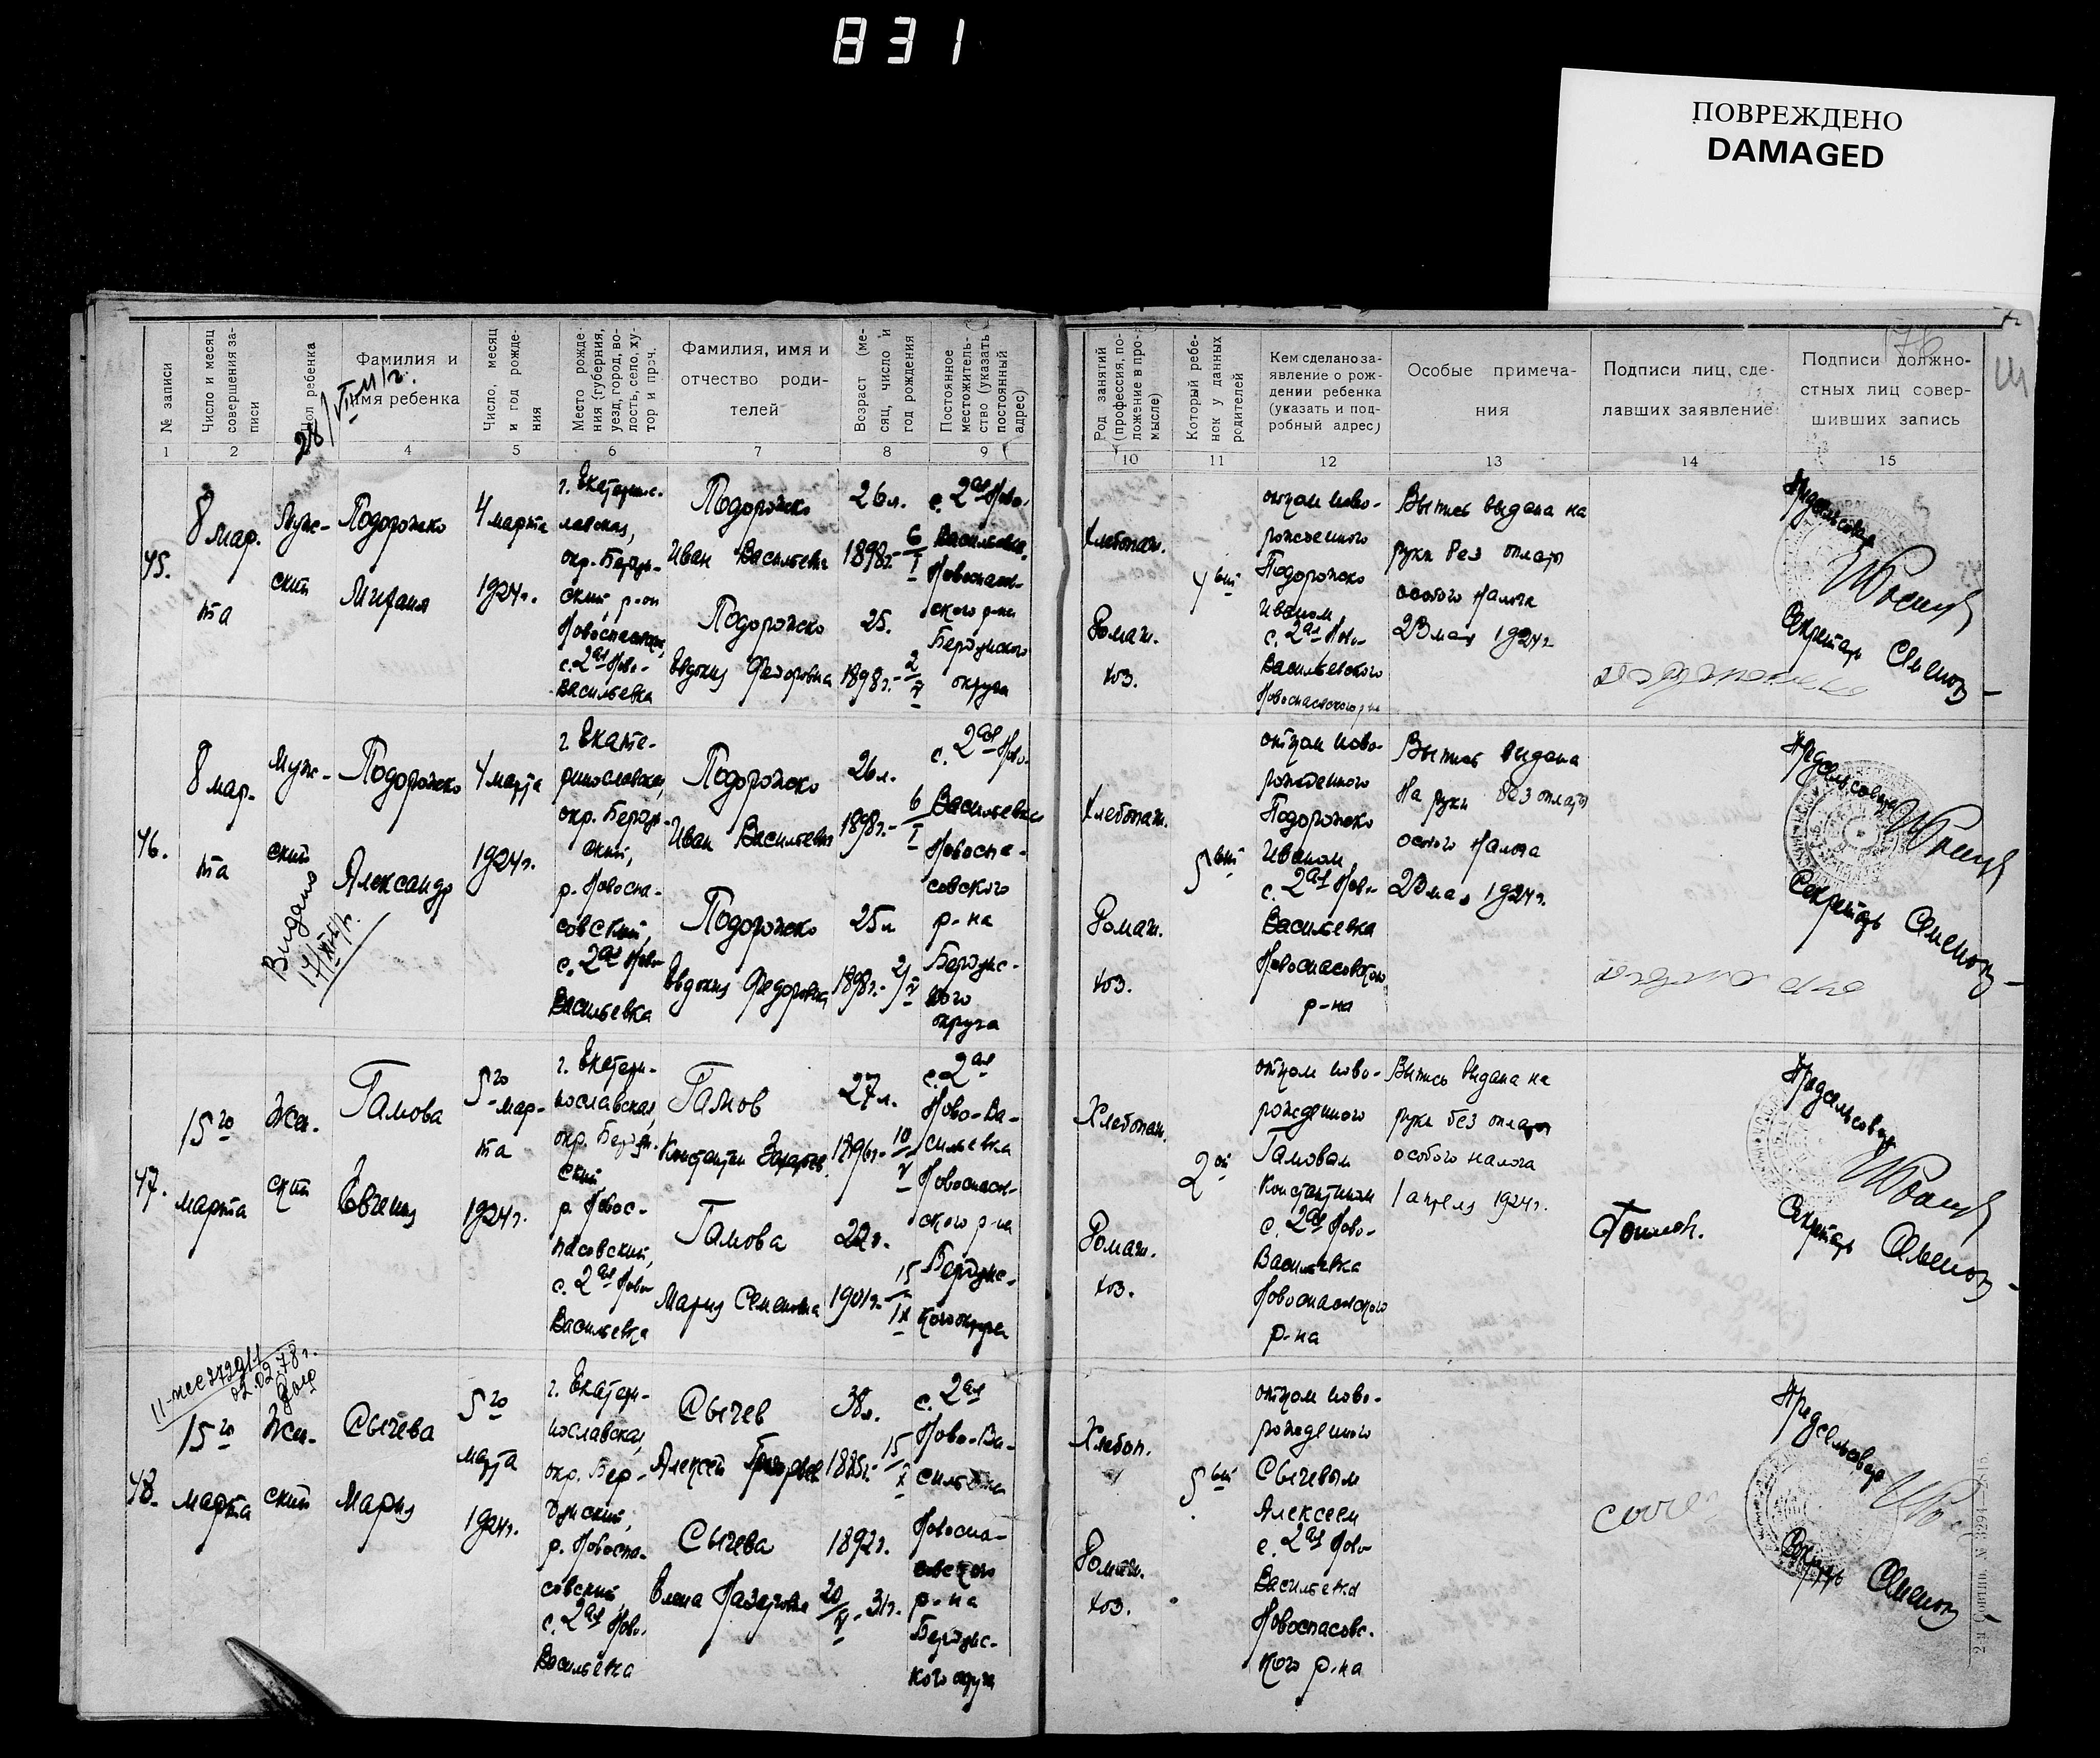 831
ПОВРЕЖДЕНО
DAMAGED
№ записи
Число и месяц
совершения за-
писи
Пол ребенка
Фамилия и
имя ребенка
Число, месяц
и год рожде-
ния
Место рожде-
ния (губерния,
уезд, город, во-
лость, село, ху-
тор и проч.
Фамилия, имя и
отчество роди-
телей
Возраст (ме-
сяц, число и
год рождения
Постоянное
местожитель-
ство (указать
постоянный
адрес)
Род занятий
(профессия, по-
ложение в про-
мысле)
Который ребе-
нок у данных
родителей
Кем сделано за-
явление о рож-
дении ребенка
(указать и под-
робный адрес)
Особые примеча-
ния
Подписи лиц, сде-
лавших заявление
Подписи должно-
стных лиц совер-
шивших запись
1 2 4 5 6 7 8 9 10 11 12 13 14 15
45.
8 мар.
та
Муж-
ский
Подорожко
4 марта
1924г.
окр. Бердян-
ский, р-он
с. 2ая Ново-
Васильевка
Подорожко
Иван Васильевич
Подорожко
Евдокия Федоровна
26л.
1898г. 6/I
25.
1898г. 2/V
с. 2ая Ново-
Васильевка,
ского р-на
Бердянского
округа
Хлебопаш.
Домаш.
хоз.
4ый
отцом ново-
рожденного
Подорожко
Иваном
с. 2ая Ново-
Васильевского
Выпись выдана на
руки без оплаты
особого налога
23 мая 1924г.
Предсельсовета
Секретарь
46.
8 мар-
та
Муж-
ский
Видано
Подорожко
Александр
4 марта
1924г.
г. Екате-
ринославская,
окр. Бердян-
ский,
р. Новоспа-
совский,
с. 2ая Ново
Васильевка
Подорожко
Иван Васильевич
Подорожко
Евдокия Федоровна
26л.
1898г. 6/I
25л
1898г. 2/V
с. 2ая Ново-
Васильевка
Новоспа-
совского
р-на
Бердянс-
кого
округа
Хлебопаш.
Домаш.
хоз.
5ый
отцом ново-
рожденного
Подорожко
Иваном
с. 2ая Ново-
Васильевка
Новоспасовского
р-на
Выпись выдана
на руки без оплаты
особого налога
23 мая 1924г.
Предсельсовета
Секретарь
47.
15го
марта
Жен-
ский
Гамова
Евгения
5го мар-
та
1924г.
г. Екатери-
нославская,
окр. Бердян-
ский,
р. Новос-
пасовский,
с. 2ая Ново
Васильевка
Гамов
Гамова
Мария Семеновна
27л.
1896г. 10/V
22г.
1901г. 15/IX
с. 2ая
Ново-Ва-
сильевка
Новоспасов-
ского р-на
Бердянс-
кого округа
Хлебопаш.
Домаш.
хоз.
2ой
отцом ново-
рожденного
Гамовым
Константином
с. 2ая Ново-
Васильевка
Новоспасовского
р-на
Выпись выдана на
руки без оплаты
особого налога
1 апреля 1924г.
Предсельсовета
Секретарь
02.02.78г.
48.
15го
марта
Жен-
ский
Сычева
Мария
5го
марта
1924г.
г. Екатери-
нославская,
окр. Бер-
дянский,
р. Новоспа-
совский,
с. 2ая Ново-
Васильевка
Сычев
Алексей
Сычева
Елена Назаровна
38л.
1885г. 15/X
1892г.
20/V 31г.
с. 2ая
Ново-Ва-
сильевка
Новоспа-
совского
р-на
Бердянс-
кого округа
Хлебоп.
Домаш.
хоз.
5ый
отцом ново-
рожденного
Сычевым
Алексеем
с. 2ая Ново-
Васильевка
Новоспасовс-
кого р-на
Предсельсовета
Секретарь